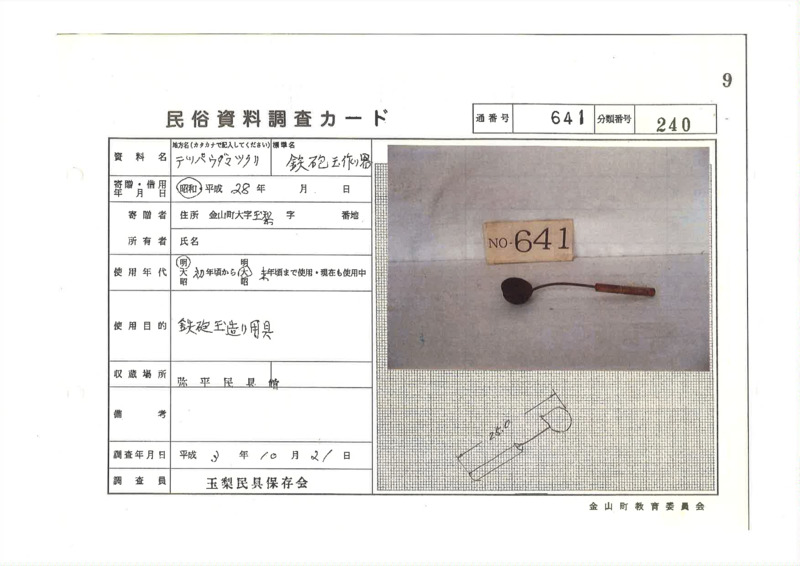 9
民俗資料調査カード
通番号 641 分類番号 240
資料名 地方名(カタカナで記入してください) テツパウダマツクリ 標準名 鉄砲玉作り器
寄贈・借用年月日 昭和・平成 28年 月 日
寄贈者 住所 金山町大字玉梨 字 番地
所有者 氏名
使用年代 明大昭 初年頃から 明大昭 末年頃まで使用・現在も使用中
使用目的 鉄砲玉造り用具
収蔵場所 弥平民具
備考
調査年月日 平成 3年 10月 21日
調査員 玉梨民具保存会
NO-641
25.0
金山町教育委員会